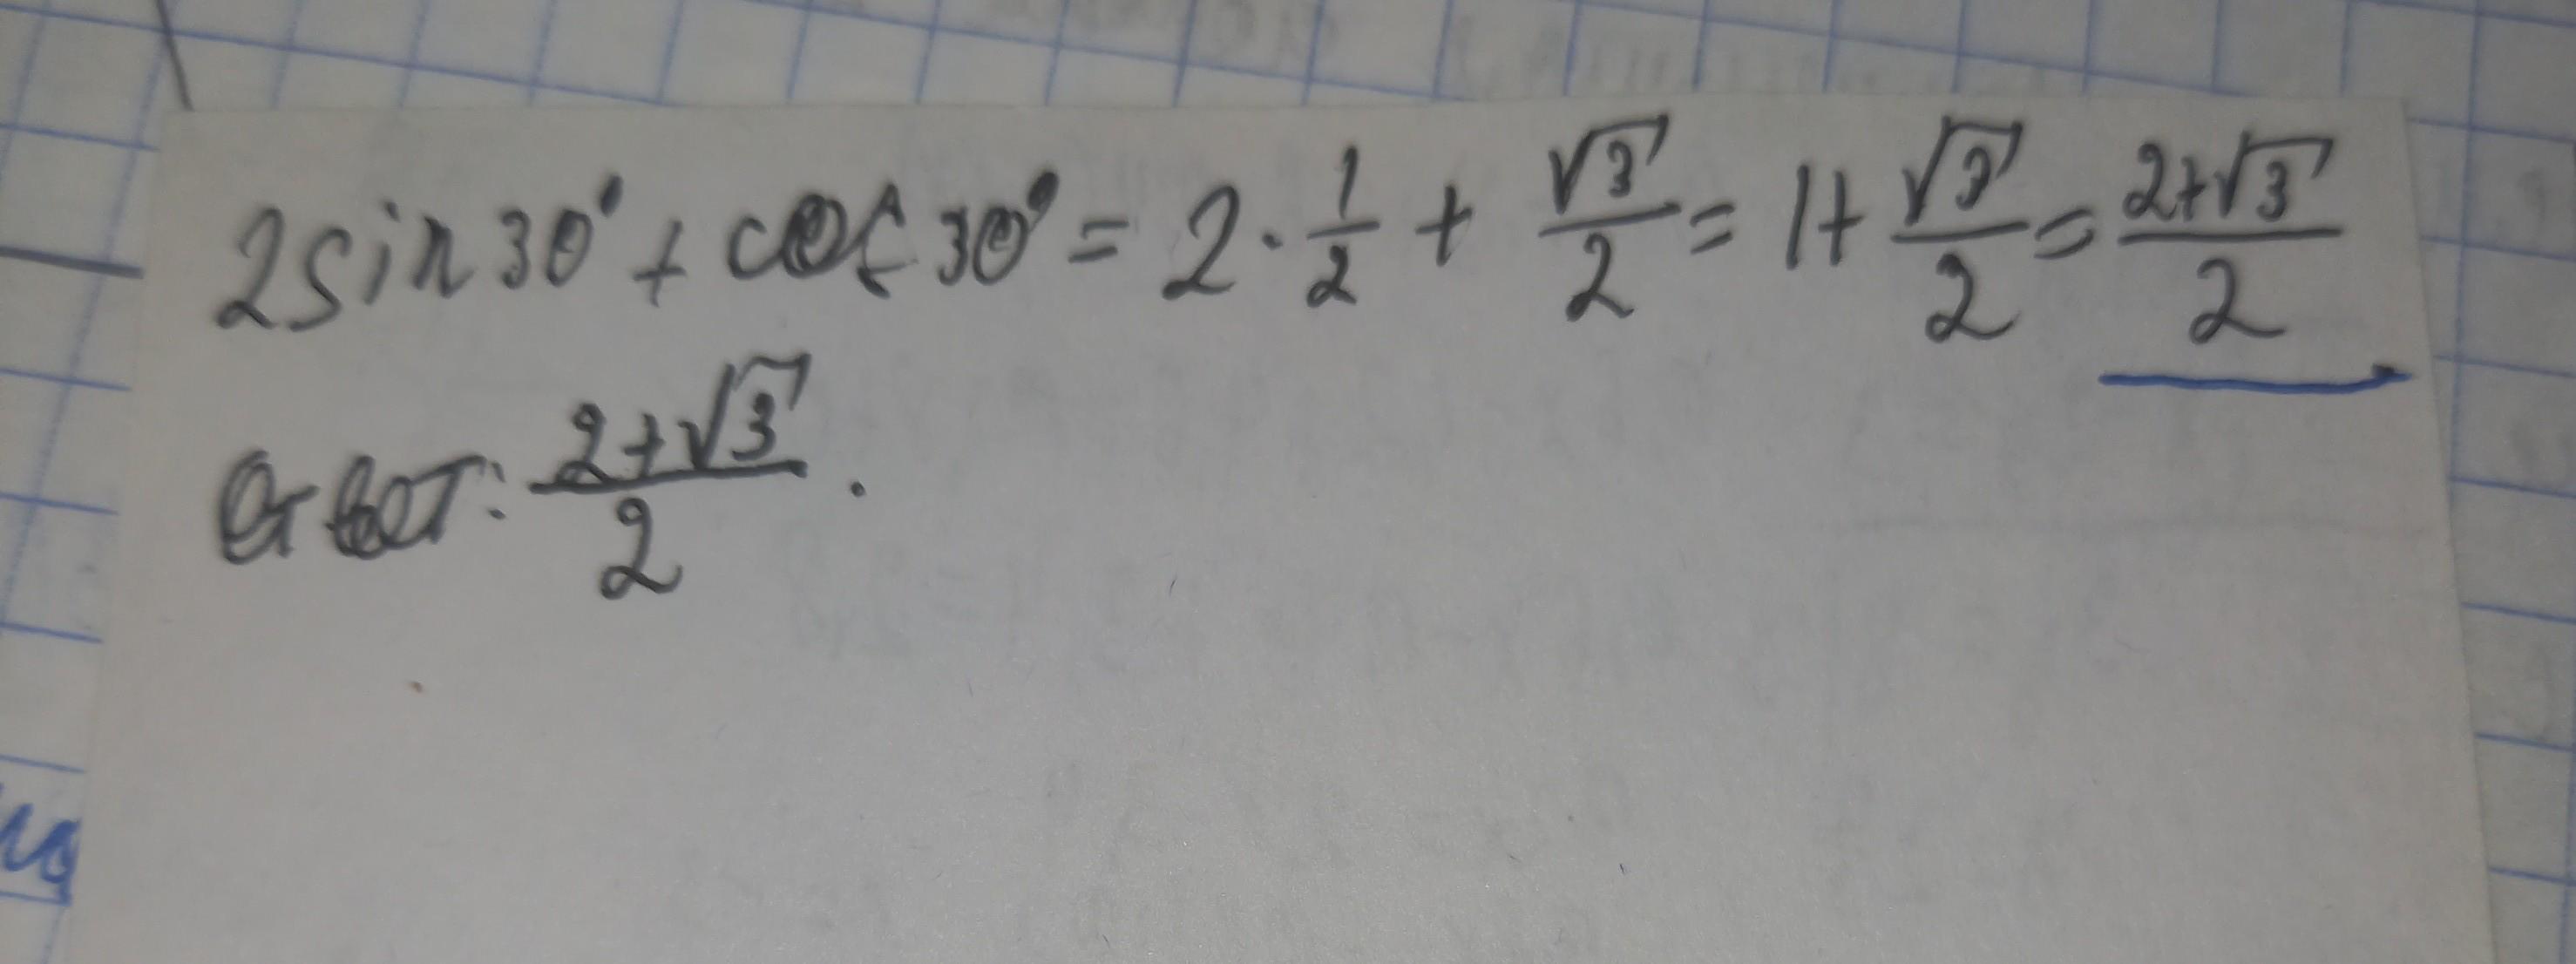 2sin30° + cos30° = 2 · 1/2 + √3/2 = 1 + √3/2 = (2+√3)/2
Ответ: (2+√3)/2.